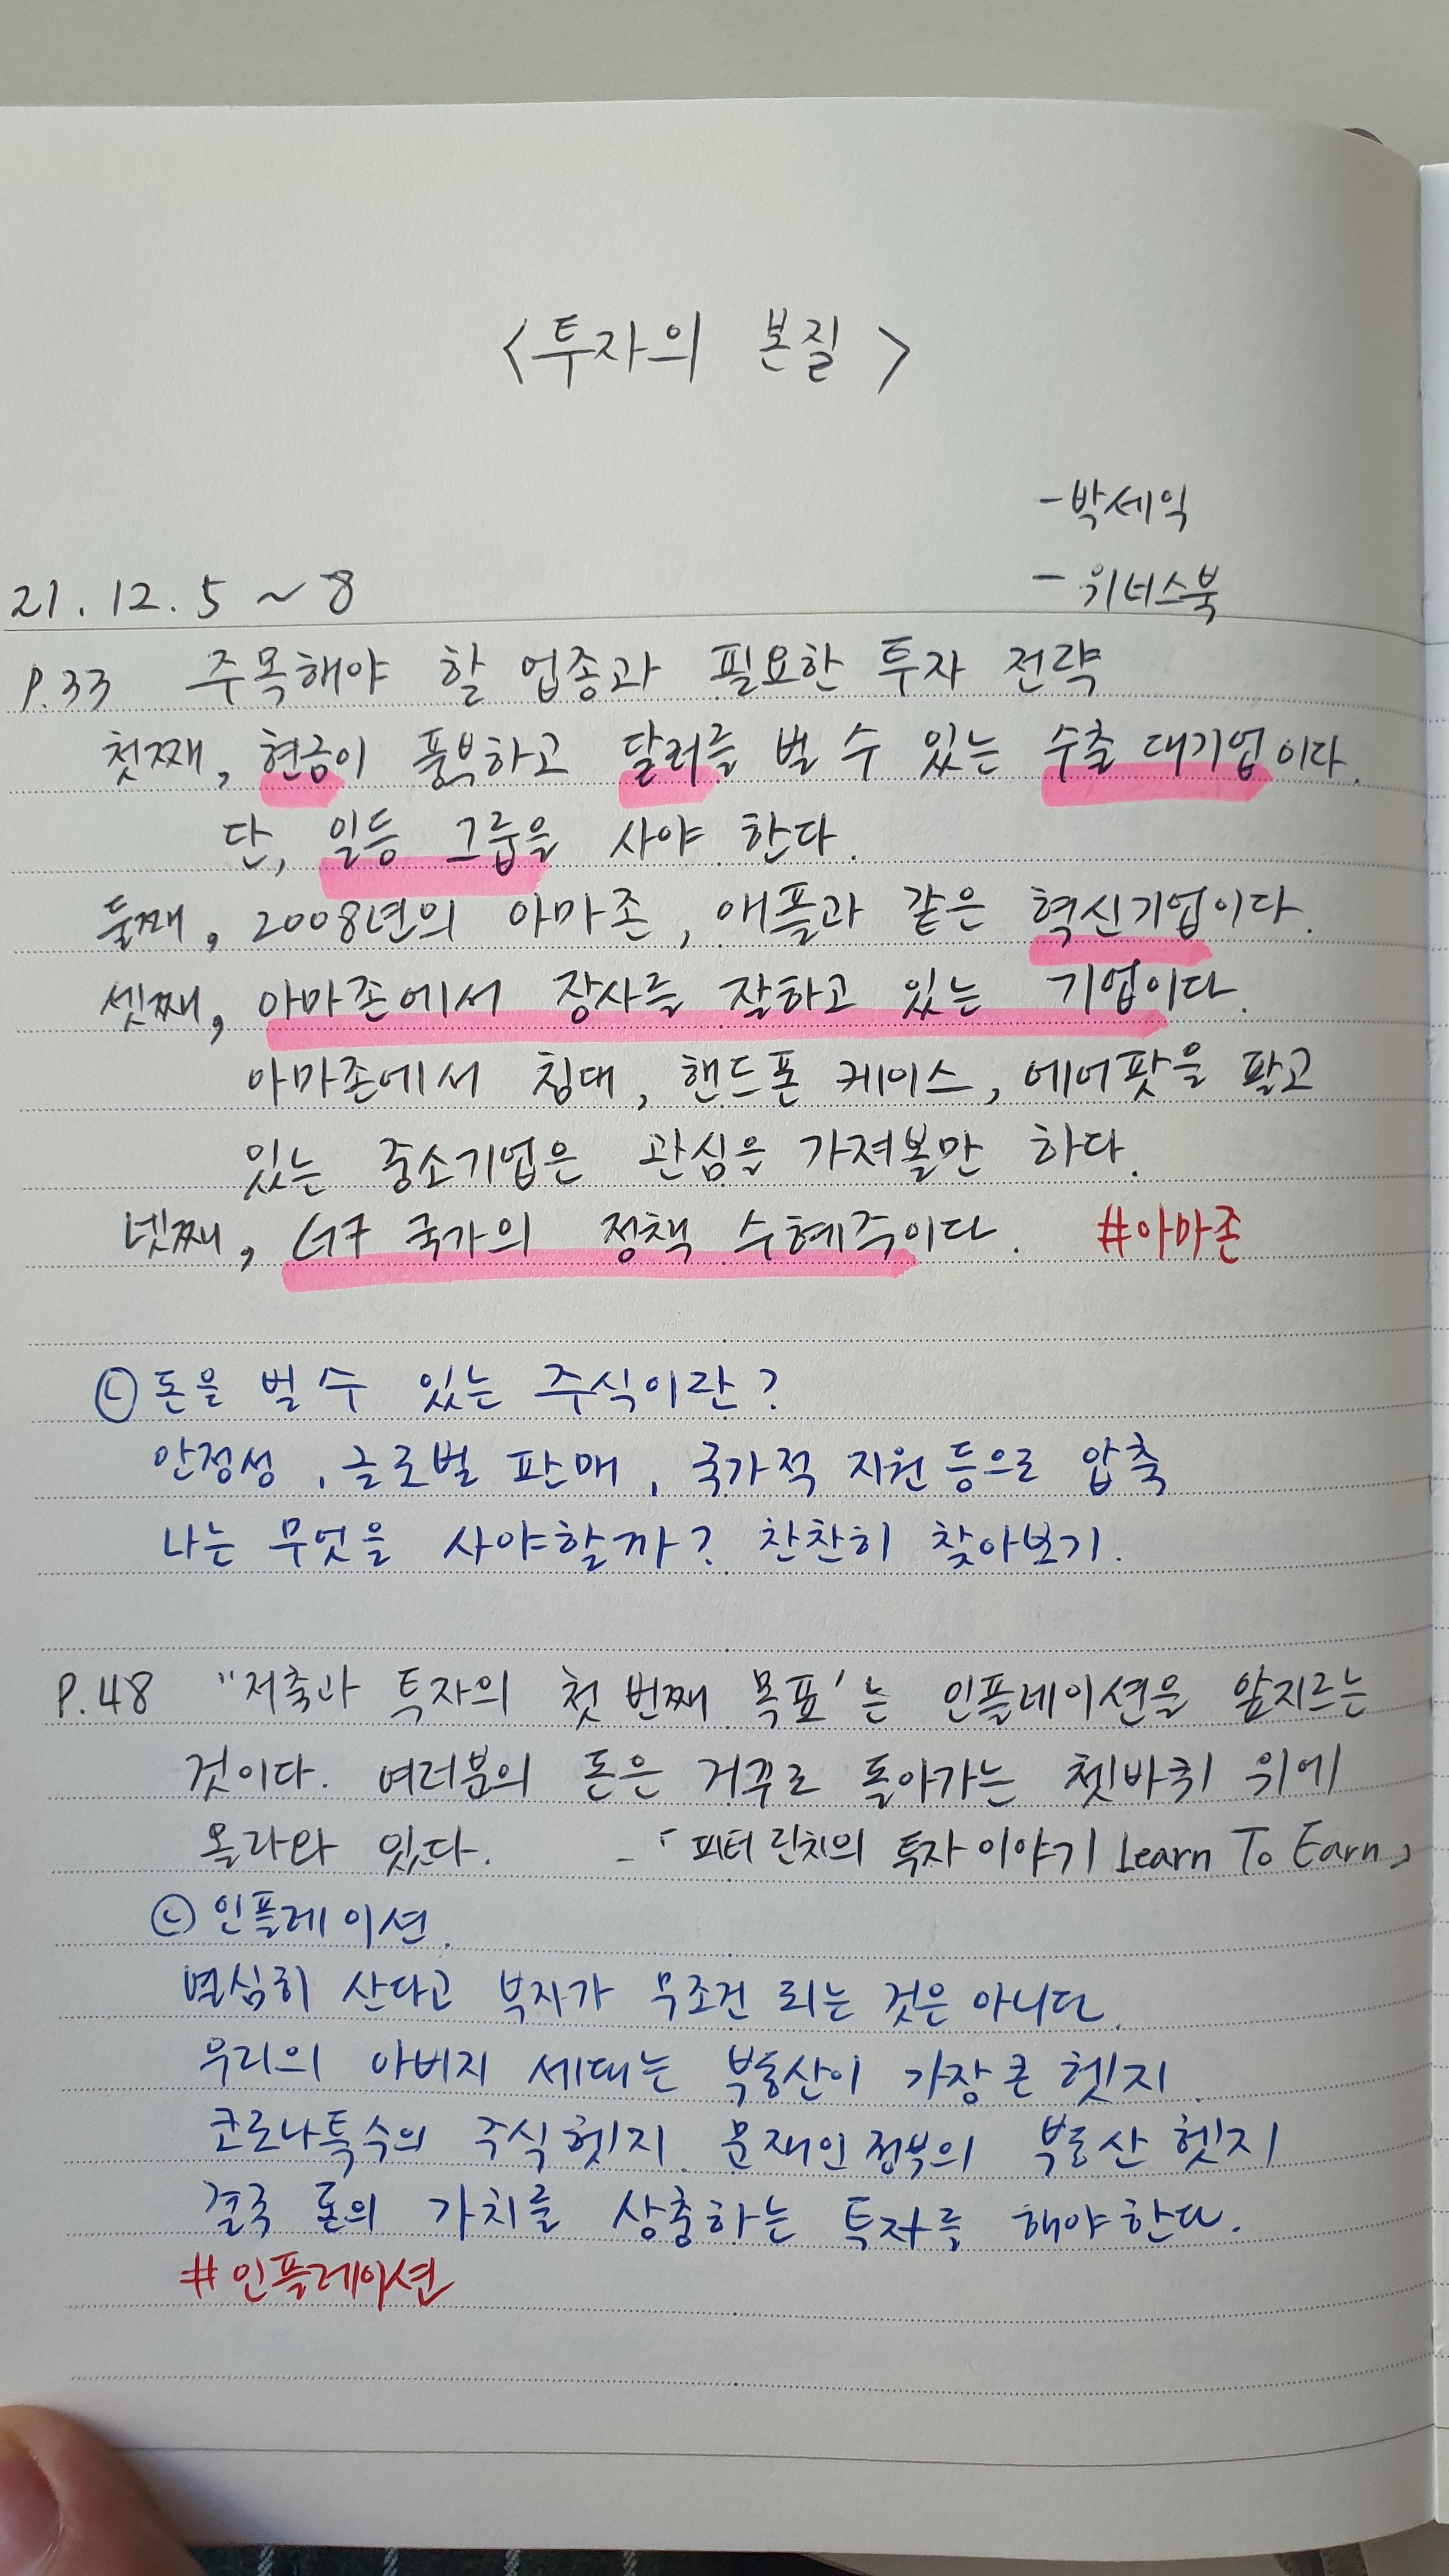 <투자의 본질>
-박세익
- 위너스북
21.12.5 ~ 8
P.33 주목해야 할 업종과 필요한 투자 전략
첫째, 현금이 풍부하고 달러를 벌 수 있는 수출 대기업이다.
단, 일등 그룹을 사야 한다.
둘째, 2008년의 아마존, 애플과 같은 혁신기업이다.
셋째, 아마존에서 장사를 잘하고 있는 기업이다.
아마존에서 침대, 핸드폰 케이스, 에어팟을 팔고
있는 중소기업은 관심을 가져볼만 하다.
넷째, G7 국가의 정책 수혜주이다. #아마존
ⓒ 돈을 벌 수 있는 주식이란?
안정성, 글로벌 판매, 국가적 지원 등으로 압축
나는 무엇을 사야할까? 찬찬히 찾아보기.
P.48 "저축과 투자의 첫 번째 목표'는 인플레이션을 앞지르는
것이다. 여러분의 돈은 거꾸로 돌아가는 쳇바퀴 위에
올라와 있다. -「피터 린치의 투자 이야기 Learn To Earn」
ⓒ 인플레이션.
열심히 산다고 부자가 무조건 되는 것은 아니다.
우리의 아버지 세대는 부동산이 가장 큰 헷지.
코로나특수의 주식 헷지. 문재인 정부의 부동산 헷지
결국 돈의 가치를 상충하는 투자를 해야한다.
#인플레이션